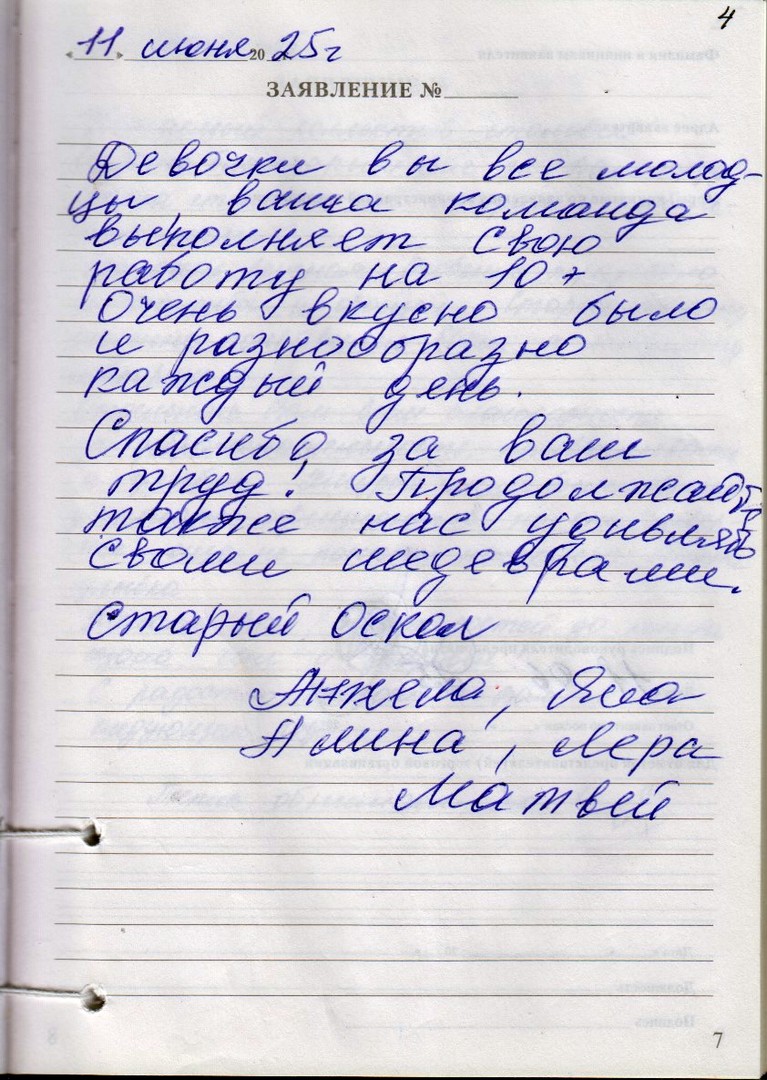 4
«11» июня 20 25г
ЗАЯВЛЕНИЕ №
Девочки вы все молод-
цы, ваша команда
выполняет свою
работу на 10+
Очень вкусно было
и разнообразно
каждый день.
Спасибо за ваш
труд! Продолжайте
также нас удивлять
своими шедеврами.
Старый Оскол
Анжела, Яна
Алина, Лера
Матвей
7